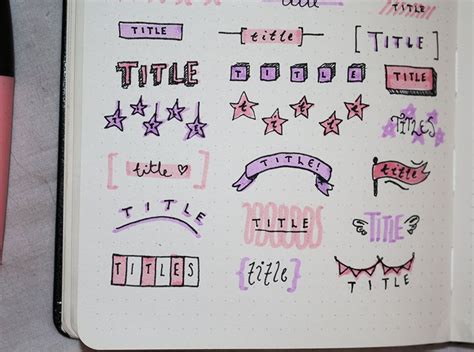 title TITLE
TITLE title TITLE
TITLE TITLE TITLE
TITLES
title ♡ TITLE! title
TITLE TITLE TITLE
TITLES title TITLE